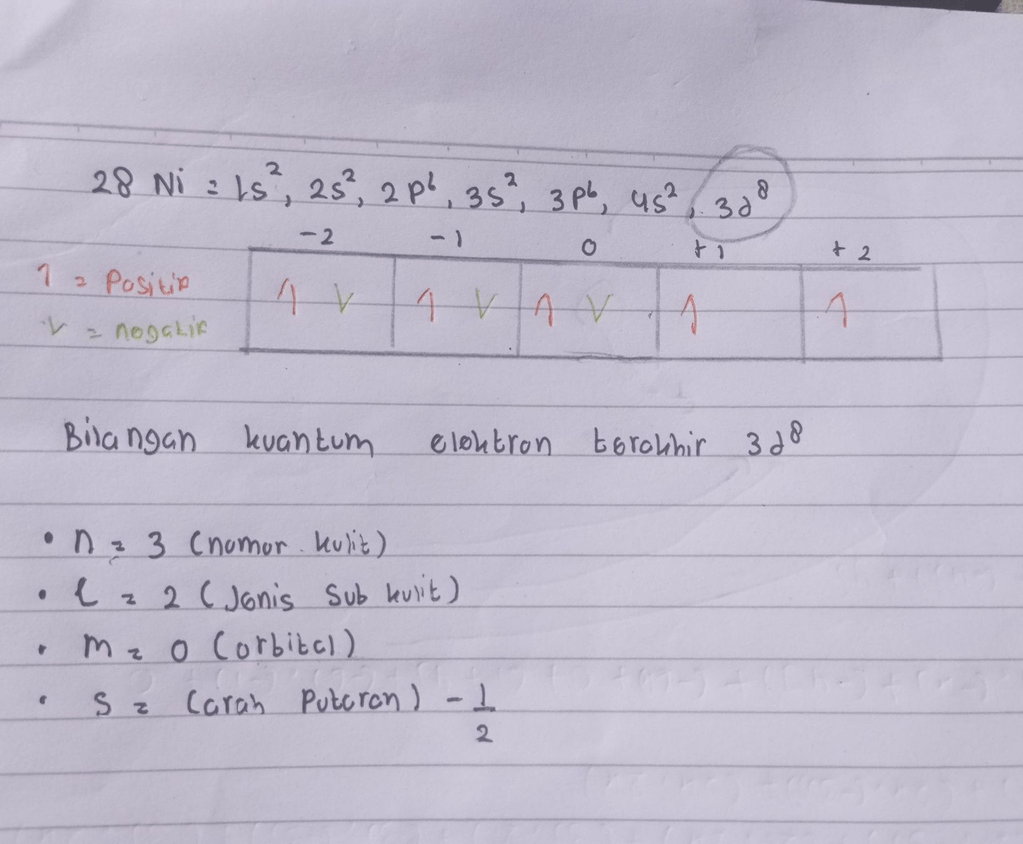 28 Ni = 1s², 2s², 2p⁶, 3s², 3p⁶, 4s², 3d⁸
-2 -1 0 +1 +2
1 = Positif 1 V 1 V 1 V 1 1
V = negatif
Bilangan kuantum elektron terakhir 3d⁸
• n = 3 (nomor kulit)
• l = 2 (Jenis Sub kulit)
• m = 0 (orbital)
• s = (arah Putaran) - 1/2